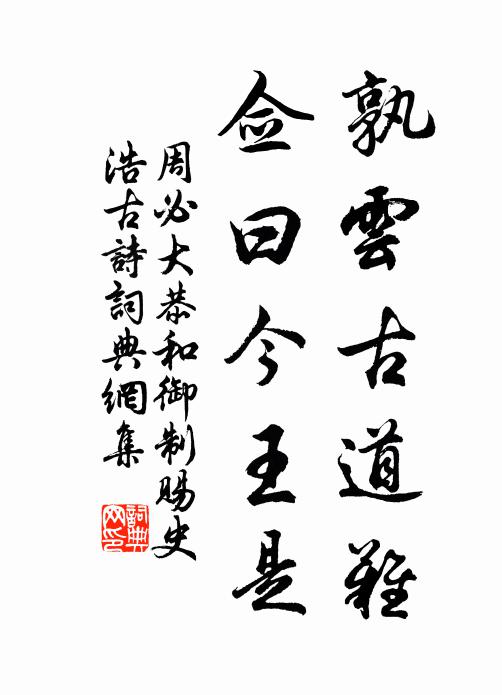 孰雲古道難
僉曰今王是
周必大恭和御制賜史
浩古詩詞典網集
詞典
网印